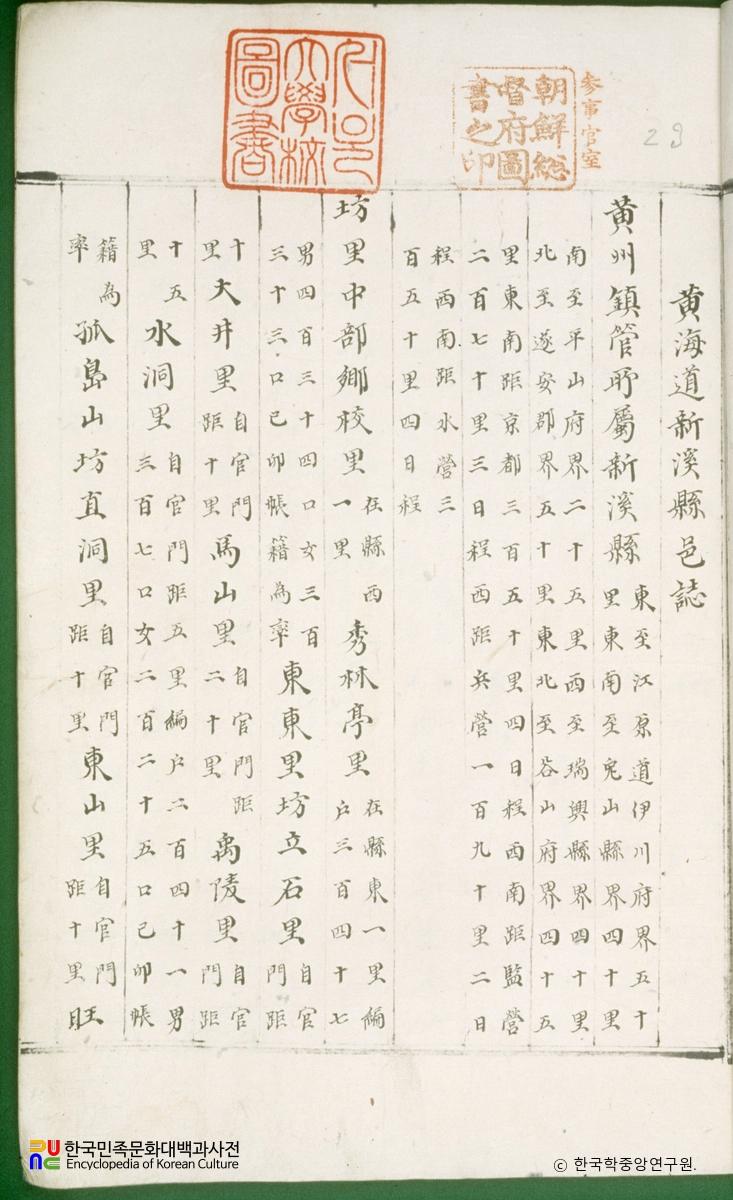 서울大學校圖書
朝鮮総督府圖書之印
参事官室
29
黃海道新溪縣邑誌
黃州鎮管所屬新溪縣東至江原道伊川府界五十里東南至兎山縣界四十里
南至平山府界二十五里西至瑞興縣界四十里北至遂安郡界五十里東北至谷山府界四十五
里東南距京都三百五十里四日程西南距監營二百七十里三日程西距兵營一百九十里二日
程西南距水營三百五十里四日程
坊里中部鄉校里在縣西一里秀林亭里在縣東一里編户三百四十七
男四百三十四口女三百三十三口己卯帳籍為率東東里坊立石里自官門距
十里大井里自官門距十里馬山里自官門距二十里禹陵里自官門距
十五里水洞里自官門距五里編户二百四十一男三百七口女二百二十五口己卯帳
籍為率孤島山坊直洞里自官門距十里東山里自官門距十里旺
한국민족문화대백과사전
Encyclopedia of Korean Culture
© 한국학중앙연구원.